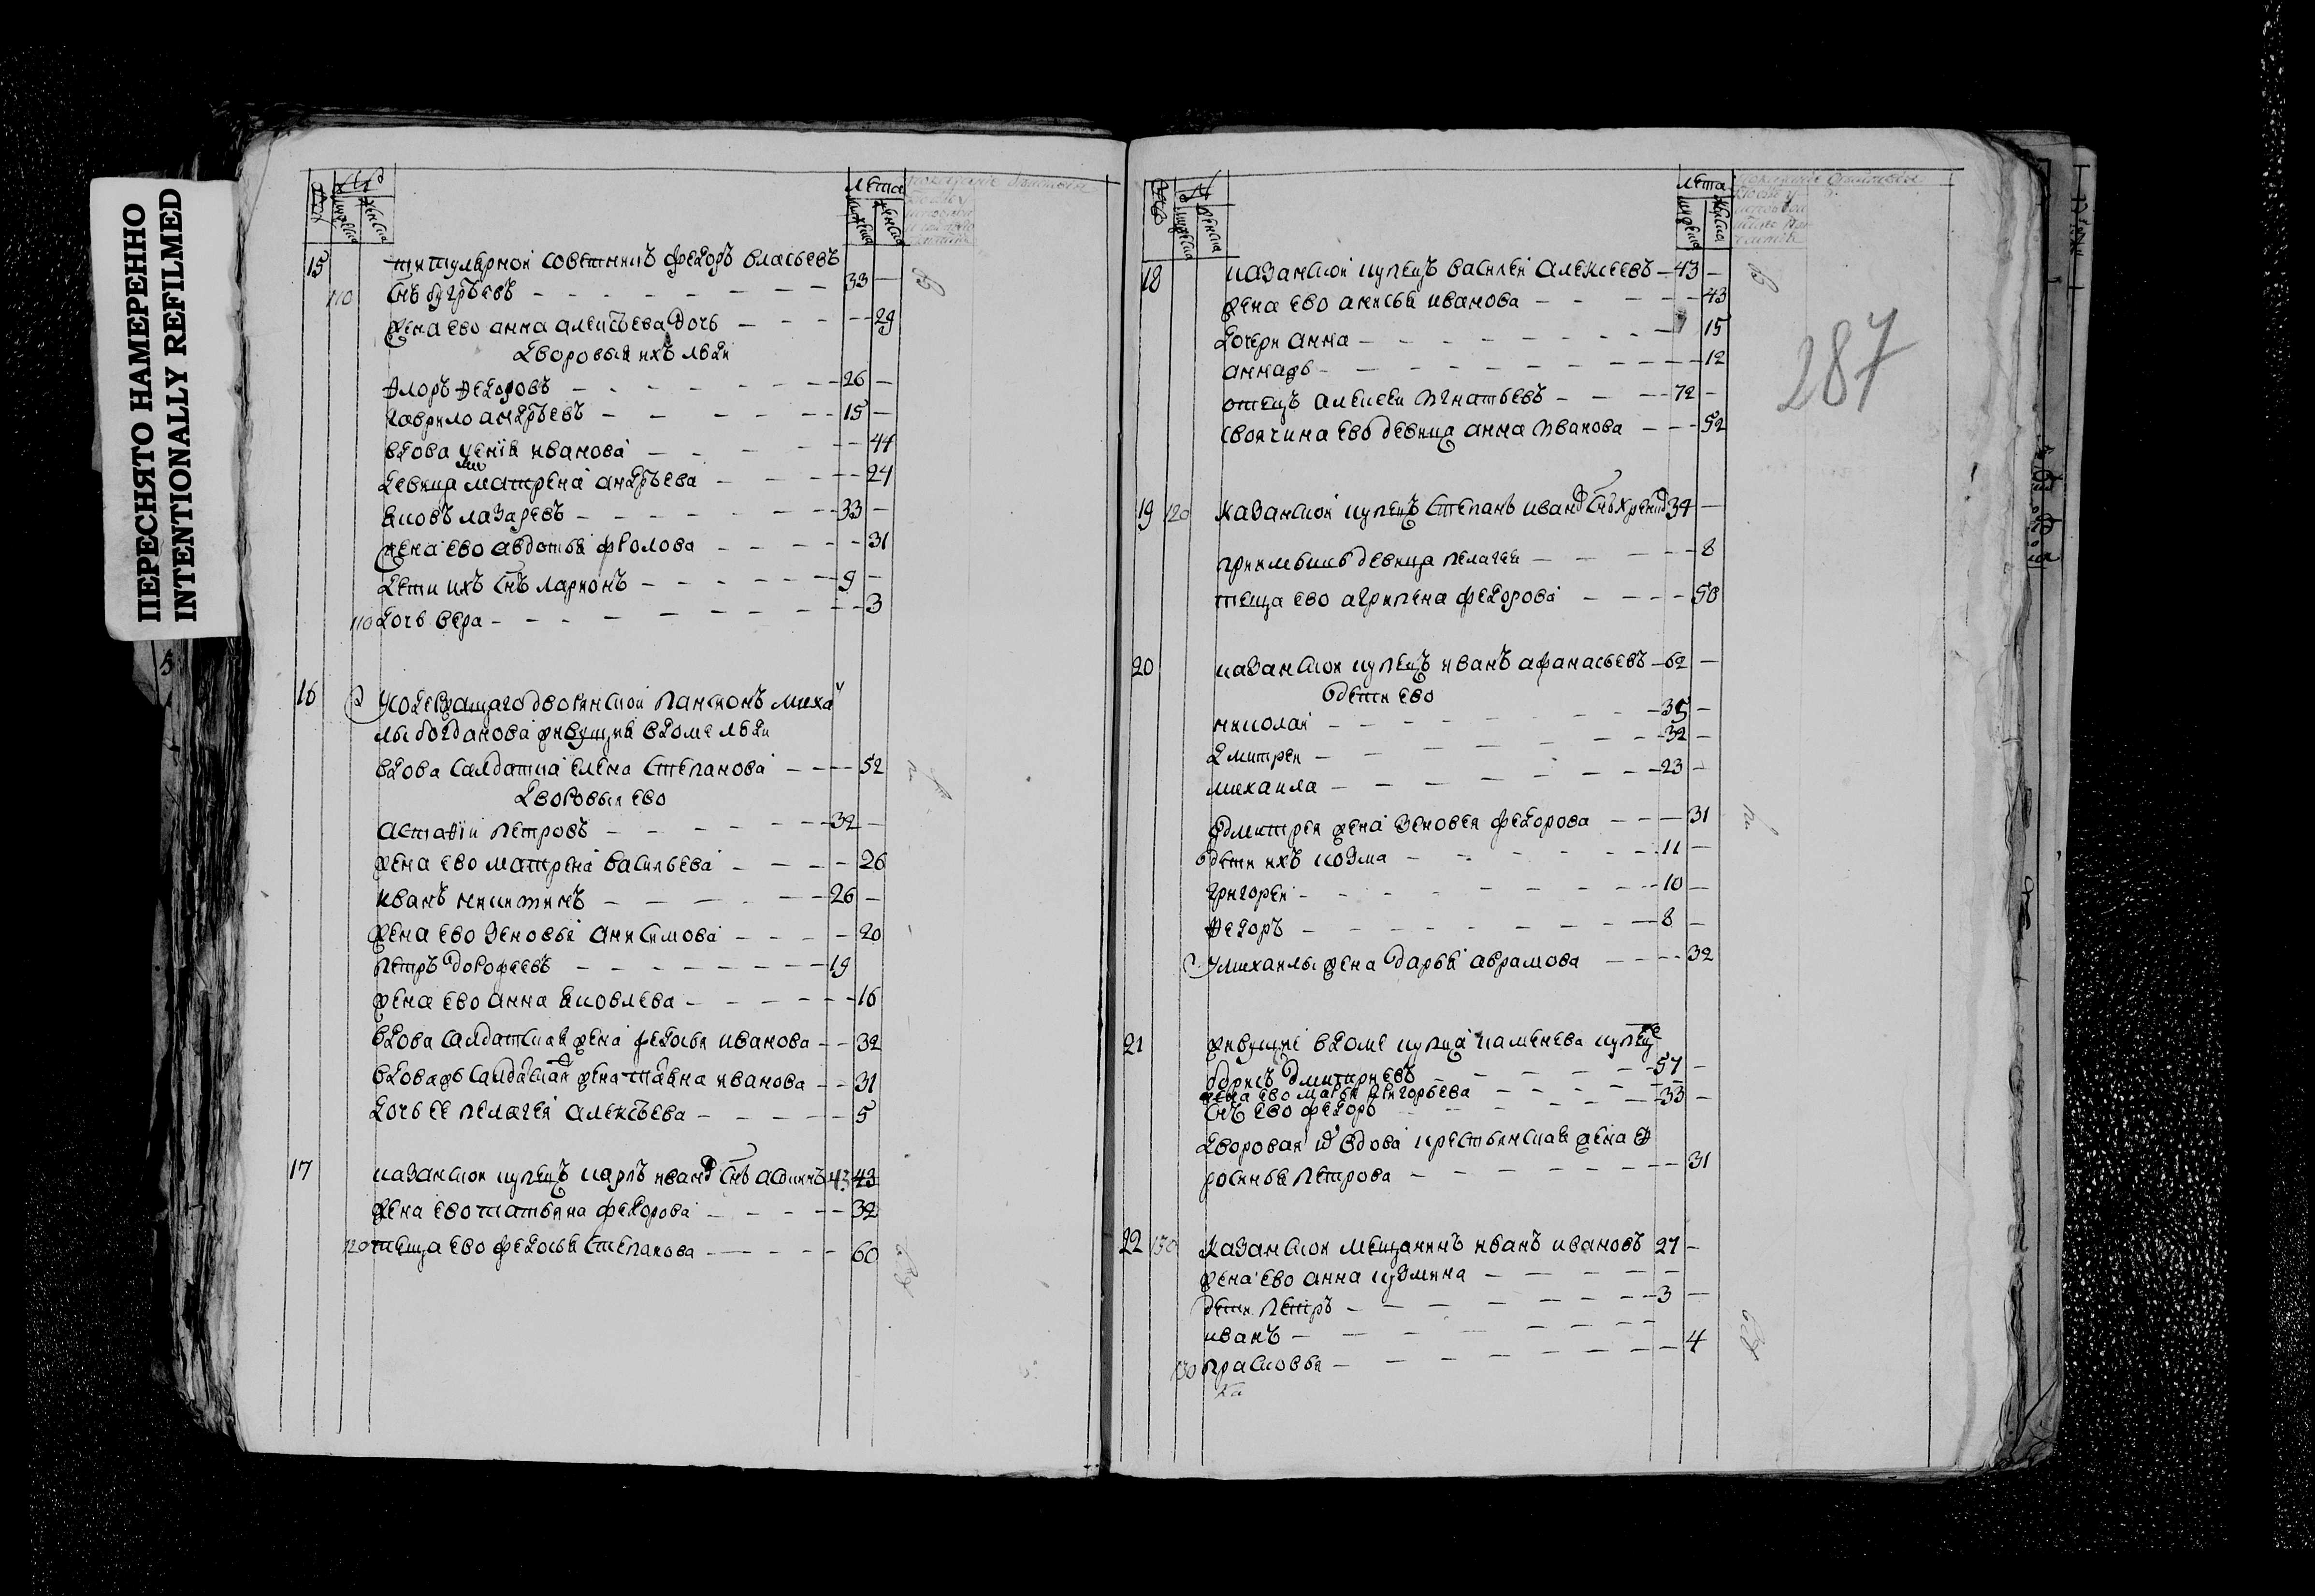 ПЕРЕСНЯТО НАМЕРЕННО
INTENTIONALLY REFILMED
лета
15 титулярнои советникъ федоръ власьевъ
110 снъ 33 —
жена ево анна алексѣева дочь — 29
дворовыя ихъ люди
флоръ федоровъ — 26 —
гаврило андрѣевъ — 15 —
вдова иванова — 44
девица матрена андрѣева — 24
яковъ лазаревъ — 33 —
жена ево авдотья фролова — 31
дети ихъ снъ ларионъ — 9 —
110 дочь вера — 3
16 У содержащаго дворянскои пансионъ михаи
лы богданова живущия в доме люди
вдова салдатка елена степанова — 52
дворовыя ево
астафіи петровъ — 32 —
жена ево матрена васильева — 26
иванъ никитинъ — 26 —
жена ево зеновья анисимова — 20
петръ дорофеевъ — 19
жена ево анна яковлева — 16
вдова салдатская жена федосья иванова — 32
иванова — 31
дочь ее пелагея алексѣева — 5
17 казанскои купецъ карпъ иванов снъ 43 43
жена ево татьяна федорова — 32
120 теща ево федосья степанова — 60
лета
18 казанскои купецъ василеи алексеевъ — 43 —
жена ево аксинья иванова — 43
дочери анна — 15
анна жъ — 12
отецъ алексеи игнатьевъ — 72 —
своячина ево девица анна иванова — 52
287
19 120 казанскои купецъ степанъ иванов снъ 34 —
приклебышъ девица пелагея — 8
теща ево агрипена федорова — 50
20 казанскои купецъ иванъ афанасьевъ — 62 —
дети ево
николаи — 35 —
дмитреи — 32 —
михаила — 23 —
у дмитрея жена зеновея федорова — 31
дети ихъ козма — 11 —
григореи — 10 —
федоръ — 8 —
у михаилы жена дарья аврамова — 32
21 живущие в доме купца каменева купец
борисъ дмитриевъ — 57 —
жена ево марья григорьева —
снъ ево федоръ — 33 —
дворовая вдова крестьянская жена еф
росинья петрова — 31
22 130 казанскои мещанинъ иванъ ивановъ 27 —
жена ево анна кузмина —
дети петръ — 3 —
иванъ —
130 прасковья — 4